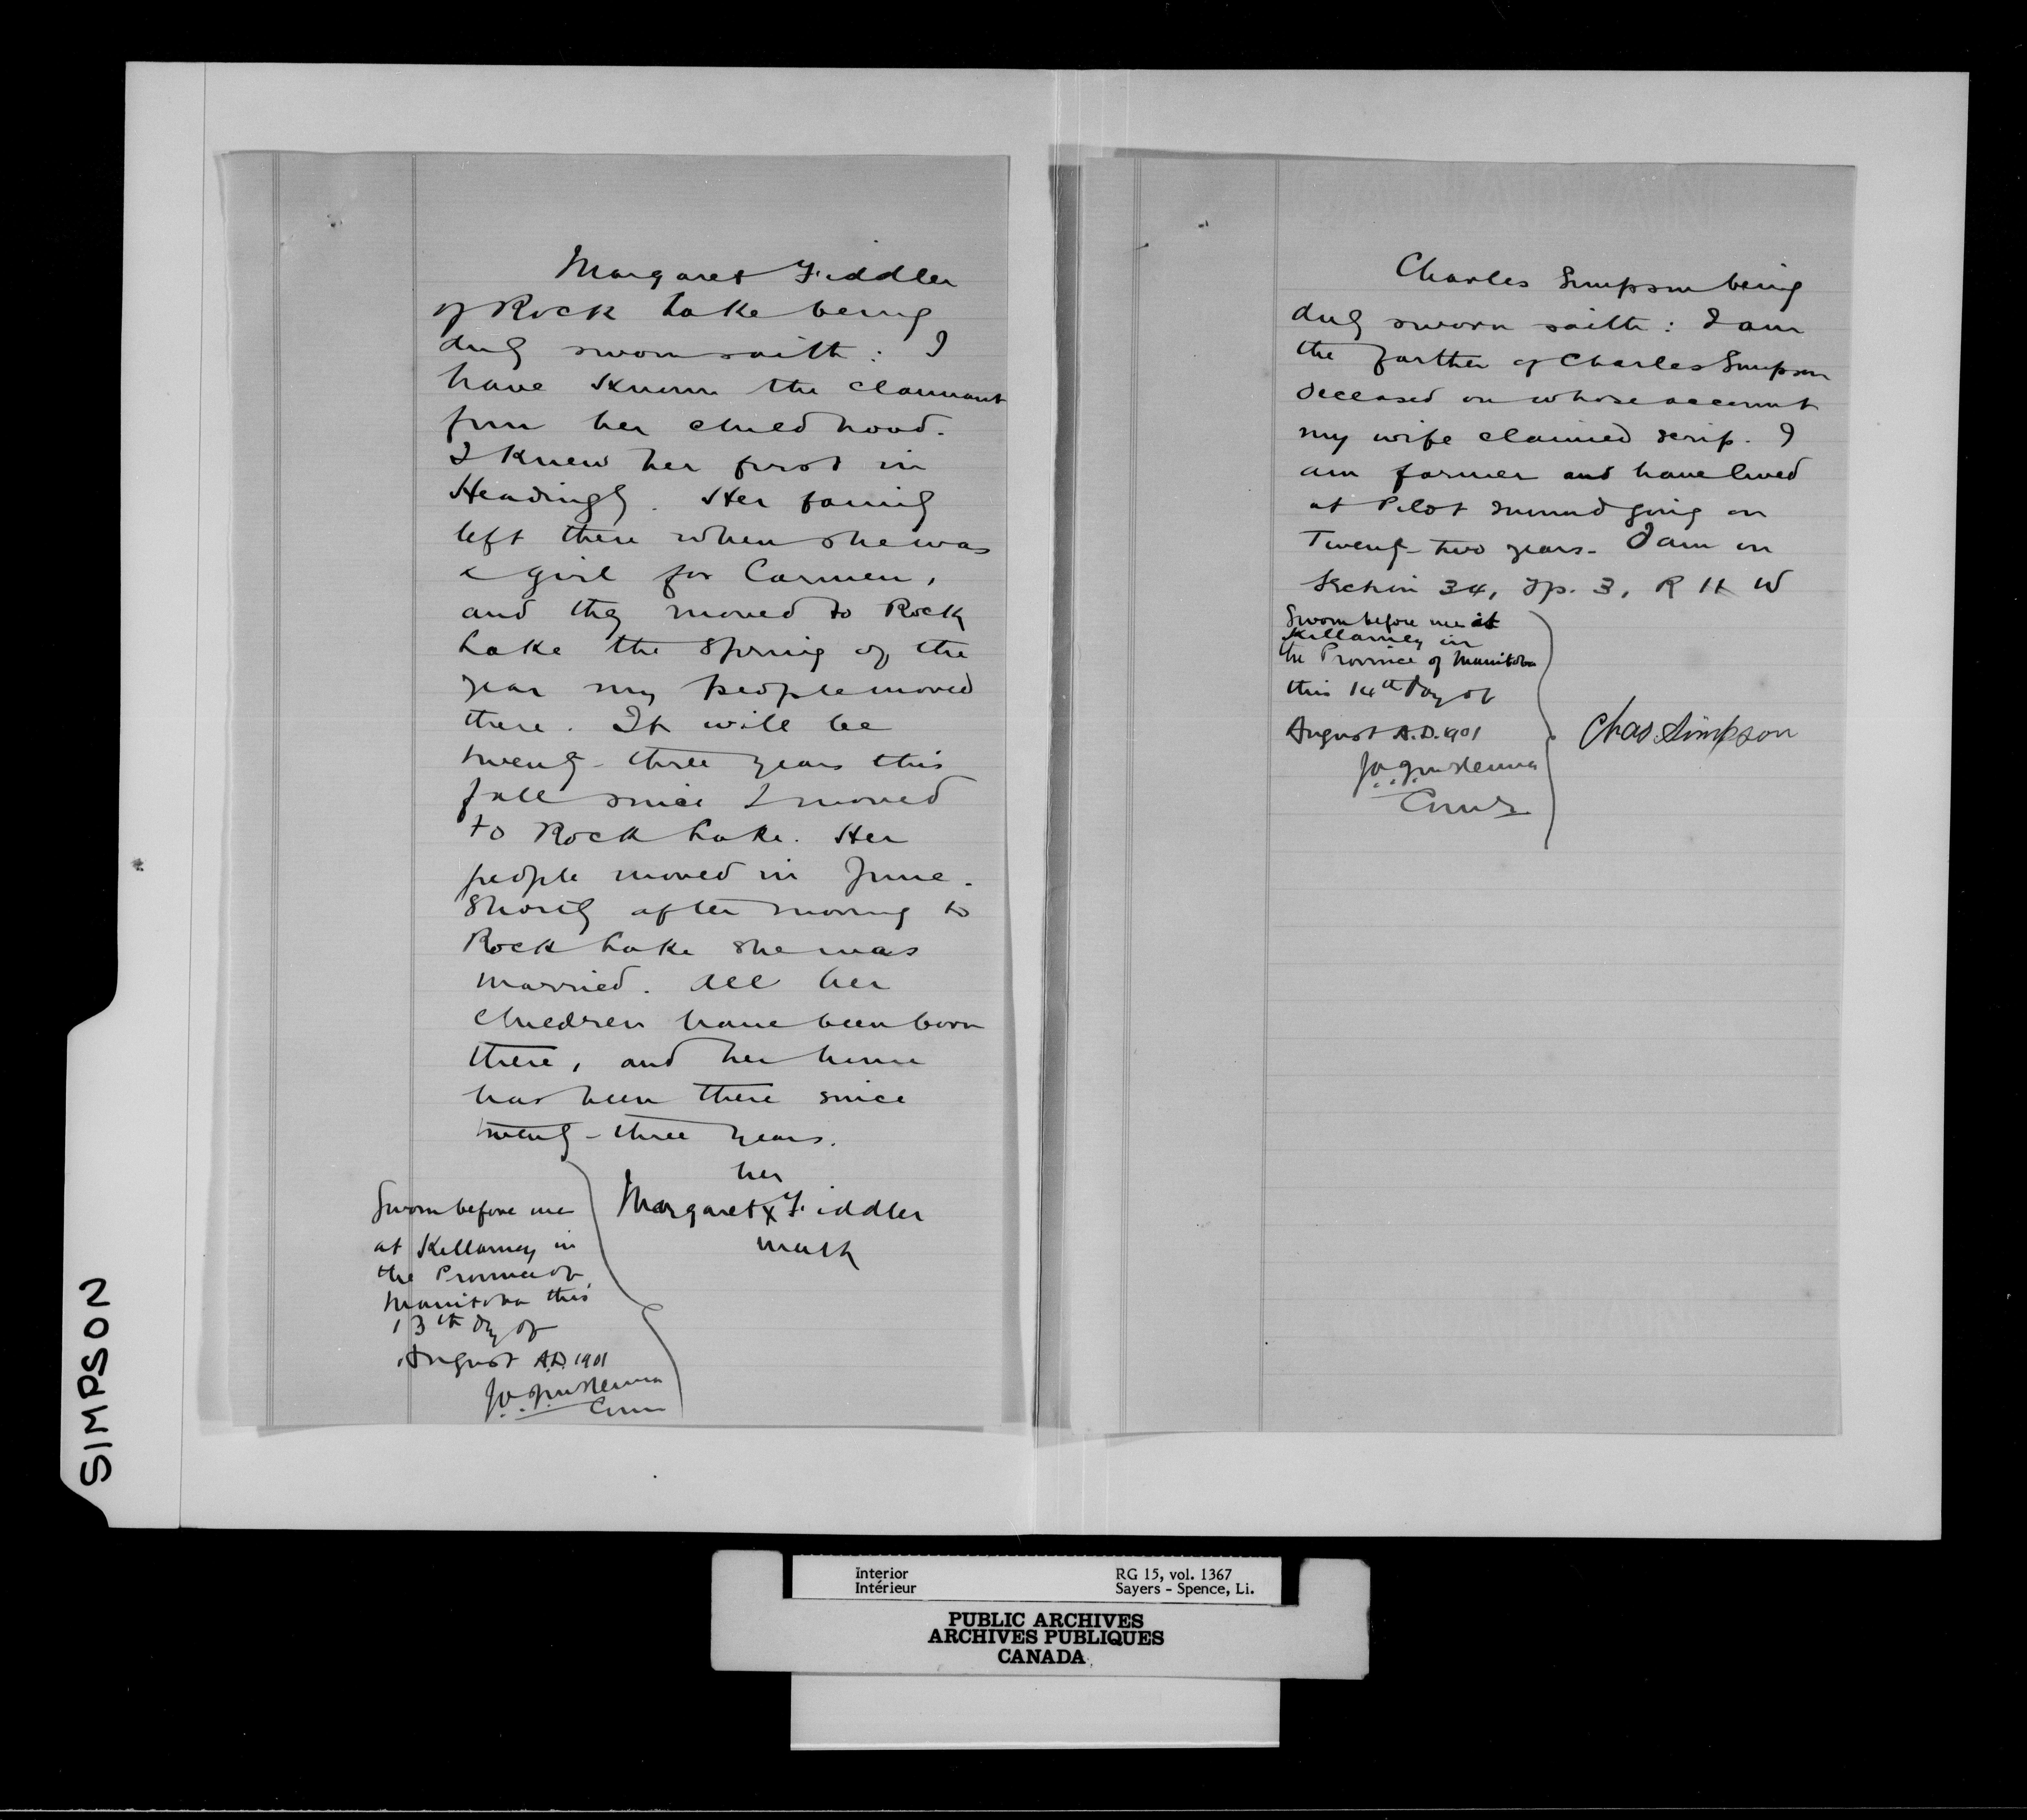 Margaret Fiddler
of Rock Lake being
duly sworn saith: I
have known the claimant
from her childhood.
I knew her first in
Headingly. Her family
left there when she was
a girl for Carmen,
and they moved to Rock
Lake the Spring of the
year my people moved
there. It will be
twenty-three years this
fall since I moved
to Rock Lake. Her
people moved in June.
Shortly after moving to
Rock Lake she was
married. All her
children have been born
there, and her home
has been there since
twenty-three years.
her
Margaret X Fiddler
mark
Sworn before me
at Killarney in
the Province of
Manitoba this
13th day of
August A.D. 1901
Charles Simpson being
duly sworn saith: I am
the farther of Charles Simpson
deceased on whose account
my wife claimed scrip. I
am farmer and have lived
at Pilot mound going on
Twenty-two years. I am on
Section 34, Tp. 3, R 11 W
Sworn before me at
Killarney in
the Province of Manitoba
this 14th day of
August A.D. 1901
Chas. Simpson
SIMPSON
Interior
Intérieur
RG 15, vol. 1367
Sayers - Spence, Li.
PUBLIC ARCHIVES
ARCHIVES PUBLIQUES
CANADA